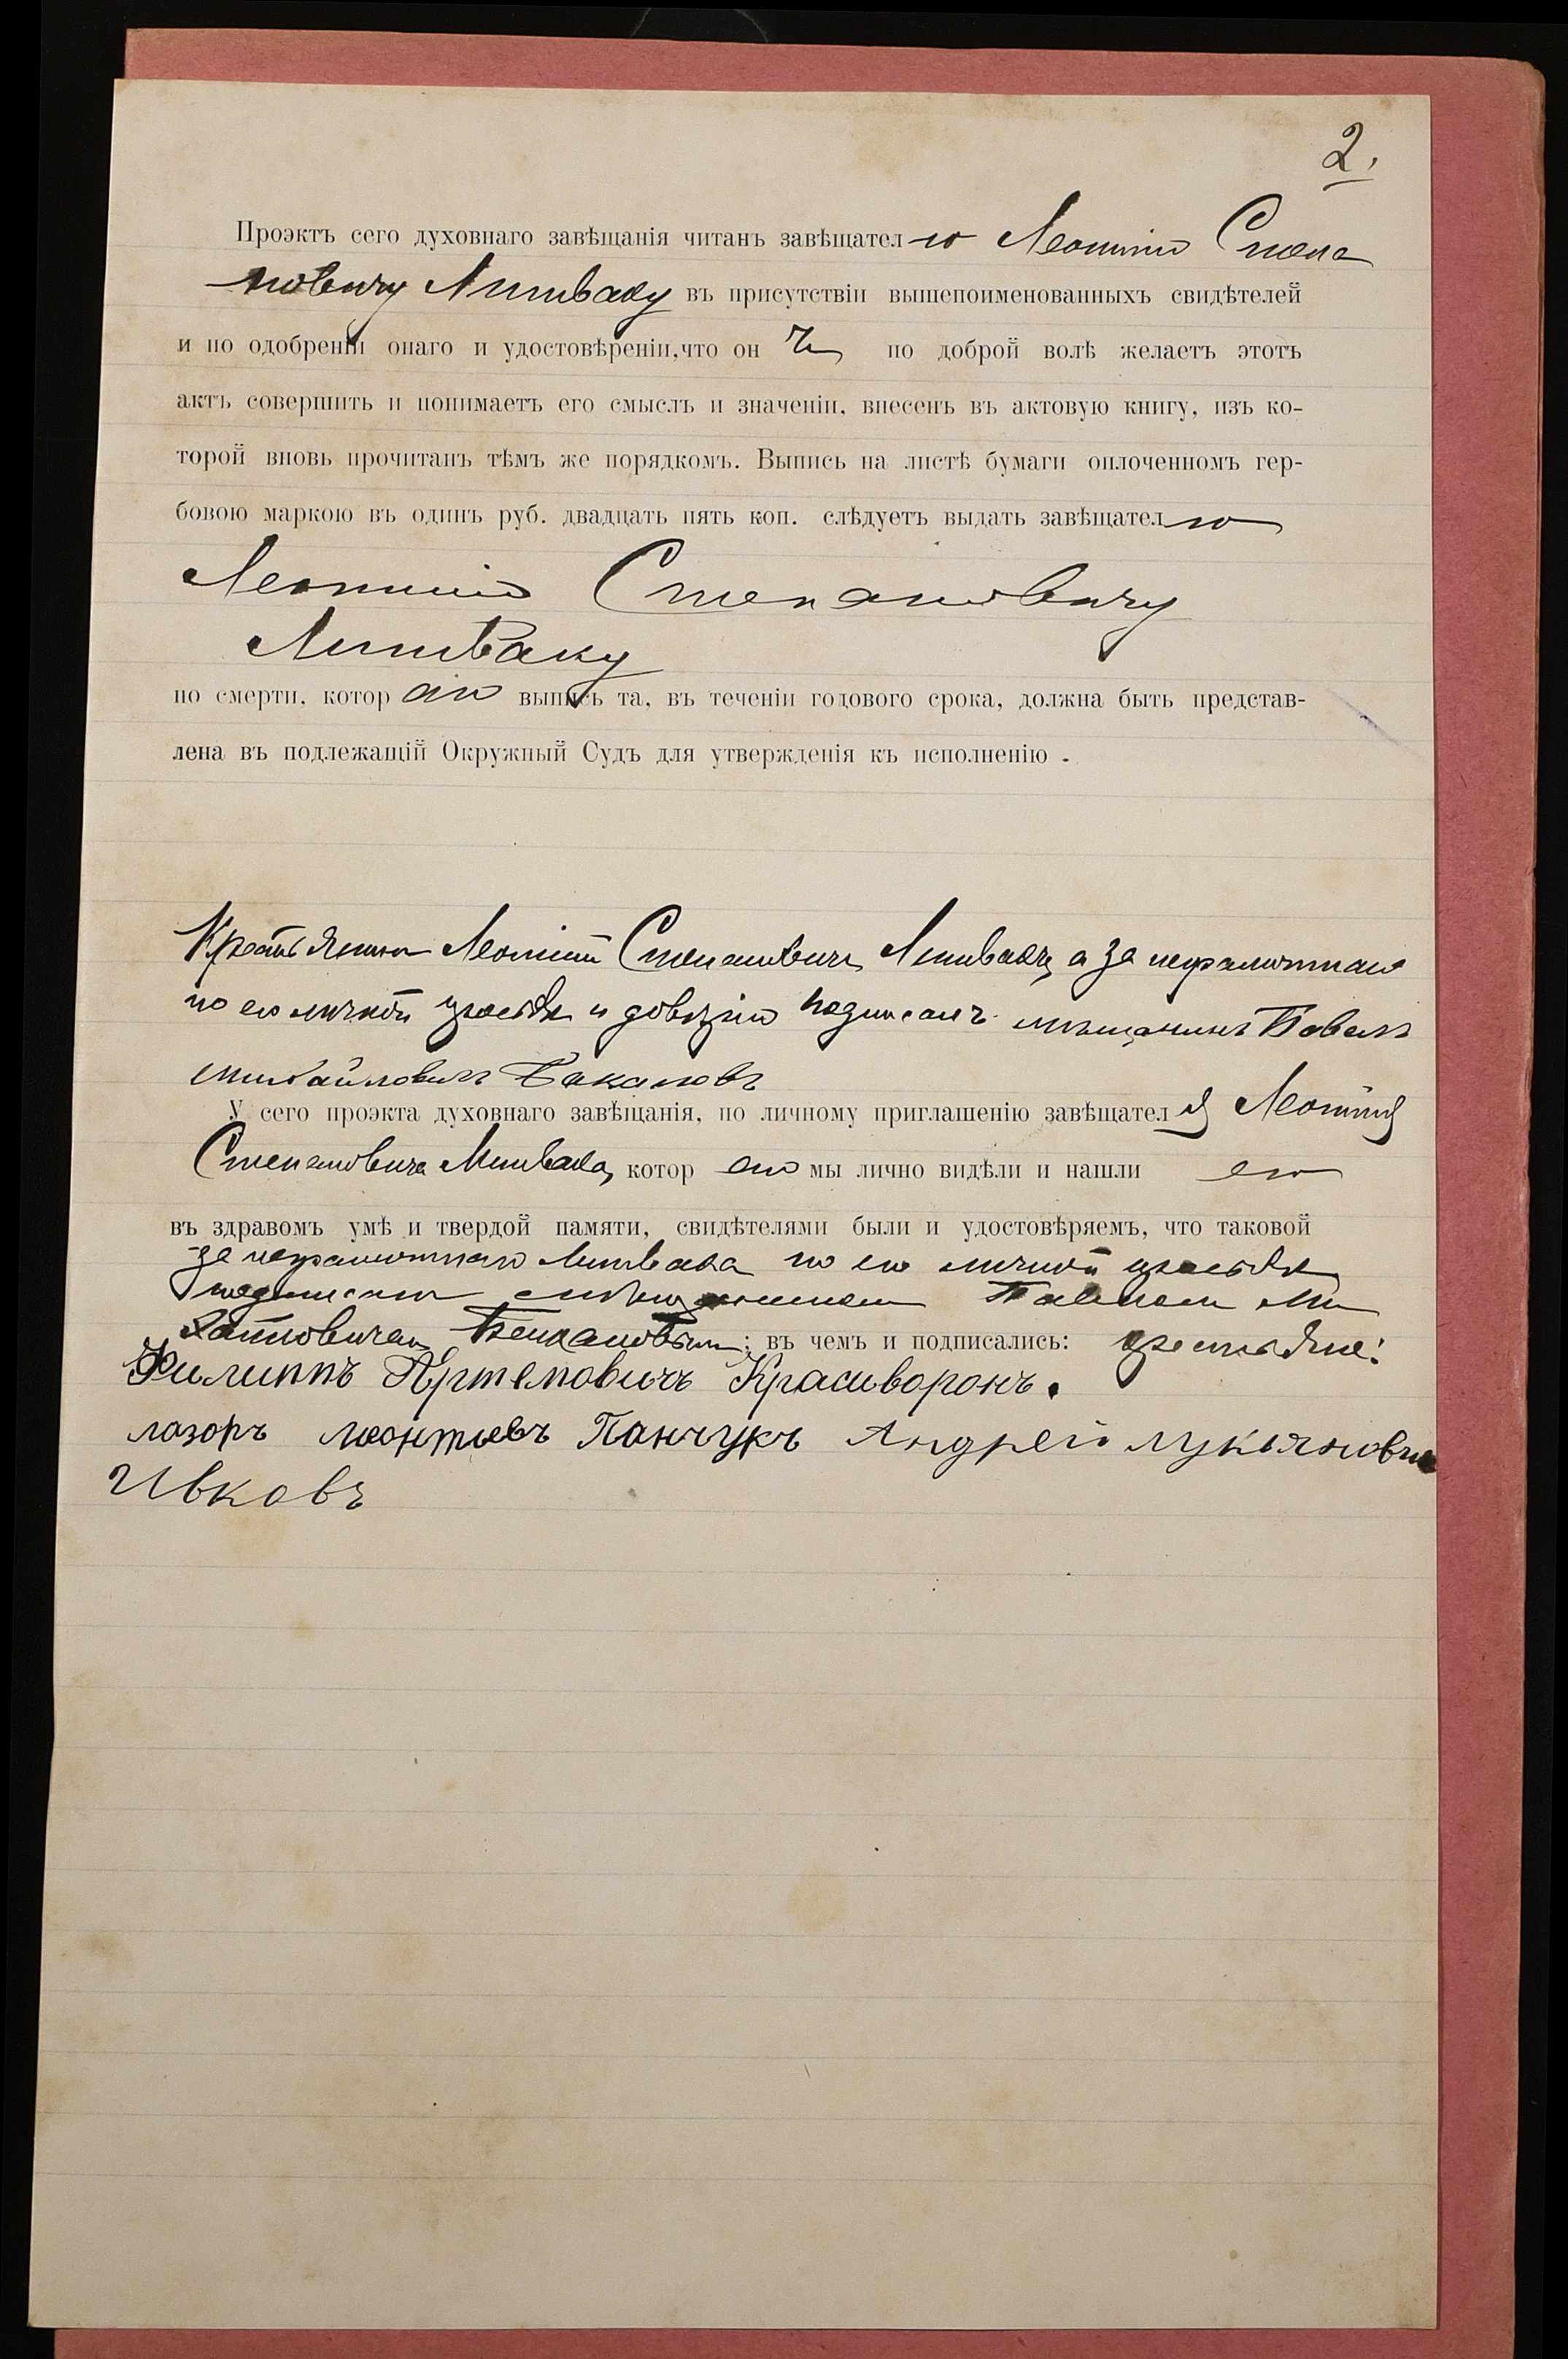 2.
Проэктъ сего духовнаго завѣщанія читанъ завѣщател-ю Леонтію Степа
новичу Литваку въ присутствіи вышепоименованныхъ свидѣтелей
и по одобреніи онаго и удостовѣреніи, что он ъ по доброй волѣ желаетъ этотъ
актъ совершить и понимаетъ его смыслъ и значеніи, внесенъ въ актовую книгу, изъ ко-
торой вновь прочитанъ тѣмъ же порядкомъ. Выпись на листѣ бумаги оплоченномъ гер-
бовою маркою въ одинъ руб. двадцать пять коп. слѣдуетъ выдать завѣщател ю
Леонтію Степановичу
Литваку
по смерти, котор аго выпись та, въ теченіи годового срока, должна быть представ-
лена въ подлежащій Окружный Судъ для утвержденія къ исполненію .
Крестьянинъ Леонтій Степановичъ Литвакъ, а за неграмотнаго
по его личной просьбѣ и довѣрію подписалъ мѣщанинъ Павелъ
Михайловичъ Бакановъ
У сего проэкта духовнаго завѣщанія, по личному приглашенію завѣщател я Леонтія
Степановича Литвака, котор аго мы лично видѣли и нашли его
въ здравомъ умѣ и твердой памяти, свидѣтелями были и удостовѣряемъ, что таковой
за неграмотнаго Литвака по его личной просьбѣ
подписанъ мѣщаниномъ Павломъ Ми
хайловичемъ Бакановымъ; въ чемъ и подписались: крестьяне:
Филиппъ Артемовичъ Красиворонъ.
лазоръ леонтьевъ Панчукъ Андрей лукьяновичъ
Ивковъ